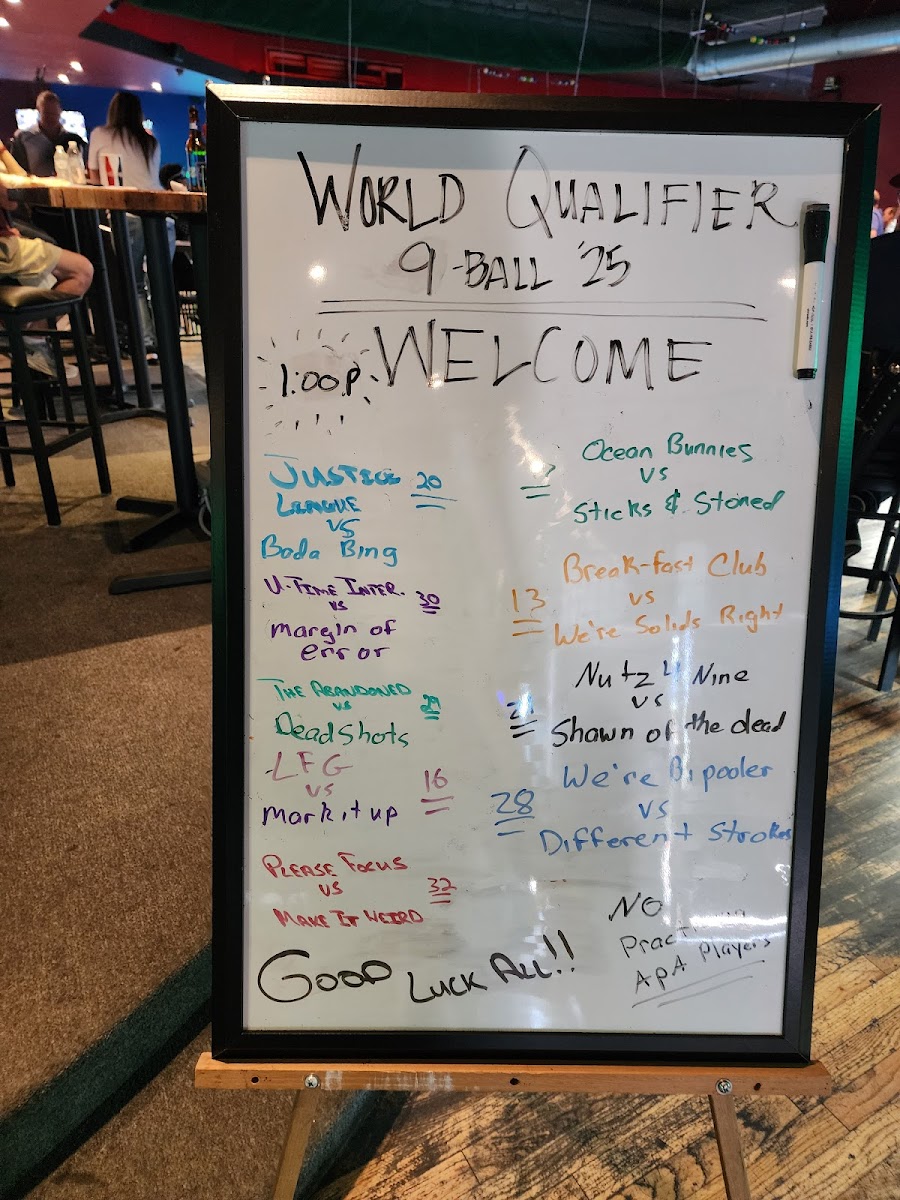 WORLD QUALIFIER
9-BALL '25
1:00P. WELCOME
JUSTICE 20
LEAGUE
VS
Bada Bing
U-TIME INTER. 30
VS
margin of
error
THE ABANDONED
VS 29
Deadshots
LFG
VS 16
Mark it up
PLEASE FOCUS
VS 32
MAKE IT WEIRD
Ocean Bunnies
VS
Sticks & Stoned
Break-fast Club
13 VS
We're Solids Right
Nutz 4 Nine
VS
Shawn of the dead
We're Bipooler
28 VS
Different Strokes
GOOD LUCK ALL!!
NO
APA Players